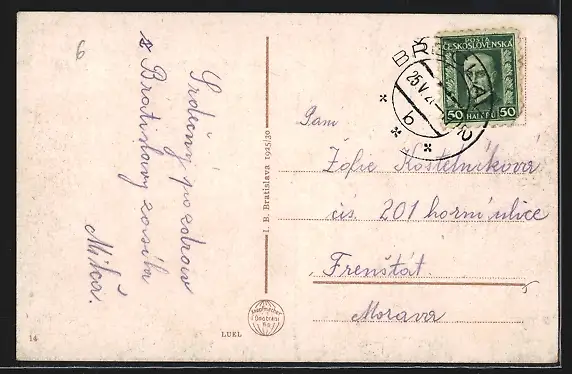 6
Srdečný pozdrav
z Bratislavy zasílá
Milča.
I. B. Bratislava 1925/30
14
LUEL
POSTA
ČESKOSLOVENSKÁ
50 HALÉŘŮ 50
BŘ
25.V.2
b
2
Paní
Žofie Kostelníková
čís. 201 horní ulice
Frenštát.
Morava